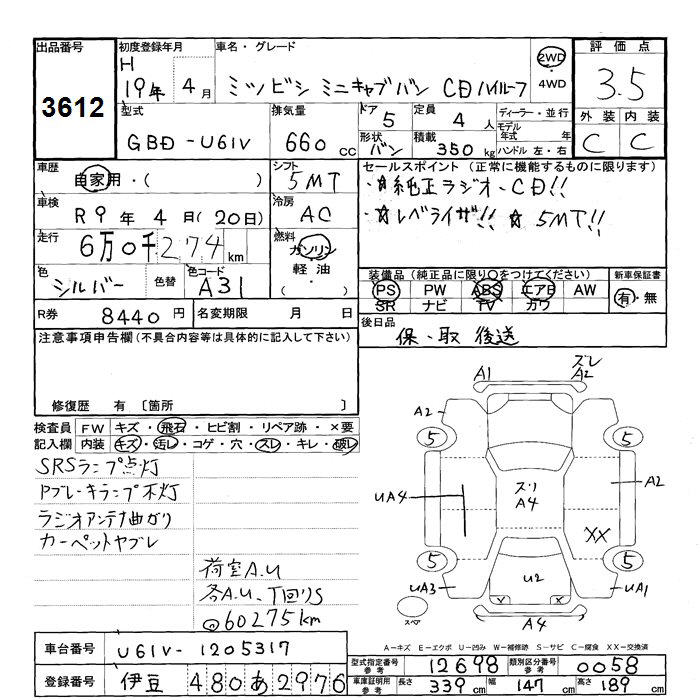 出品番号
3612
初度登録年月
H 19年 4月
車名・グレード
ミツビシ ミニキャブバン CDハイルーフ
2WD
・
4WD
評価点
3.5
型式
GBD-U61V
排気量
660 cc
ドア
5
定員
4 人
ディーラー・並行
モデル年式 年
形状
バン
積載
350 kg
ハンドル 左・右
外装 内装
C C
車歴
自家用・( )
シフト
5MT
車検
R9年 4月(20日)
冷房
AC
走行
6万0千274 km
燃料
ガソリン
軽油
・( )
色
シルバー
色替
色コード
A31
セールスポイント(正常に機能するものに限ります)
・☆純正ラジオ・CD!!
・☆レベライザ!! ☆5MT!!
装備品(純正品に限り○をつけてください)
PS PW ABS エアB AW
SR ナビ TV カワ
新車保証書
有・無
R券
8440 円
名変期限 月 日
後日品
保・取 後送
注意事項申告欄(不具合内容等は具体的に記入して下さい)
修復歴 有 〔箇所 〕
検査員
記入欄
FW キズ・飛石・ヒビ割・リペア跡・×要
内装 キズ・汚レ・コゲ・穴・スレ・キレ・破レ
SRSランプ点灯
Pブレーキランプ不灯
ラジオアンテナ曲がり
カーペットヤブレ
荷室A.U
各A.U、下回りS
60275km
A1
ズレ
A2
A2
5
5
UA4
ズリ
A4
A2
XX
5
5
UA3
U2
UA1
スペア
A4
A-キズ E-エクボ U-凹み W-補修跡 S-サビ C-腐食 XX-交換済
車台番号
U61V-1205317
登録番号
伊豆 480あ2976
型式指定番号
参考
12698
類別区分番号
参考
0058
車庫証明用
参考
長さ 339 cm 幅 147 cm 高さ 189 cm